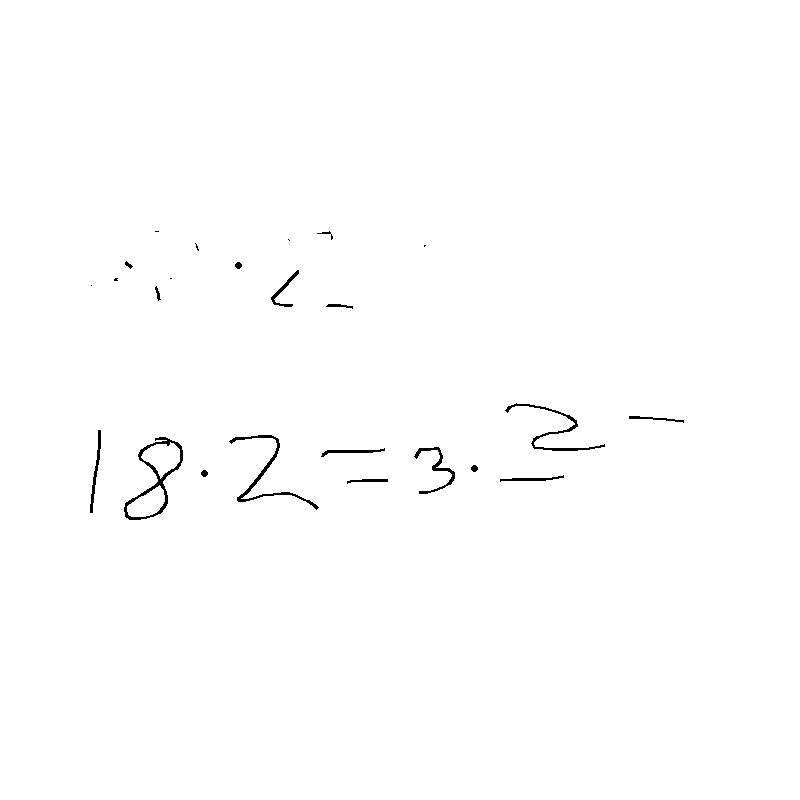 18·2=3·_2-